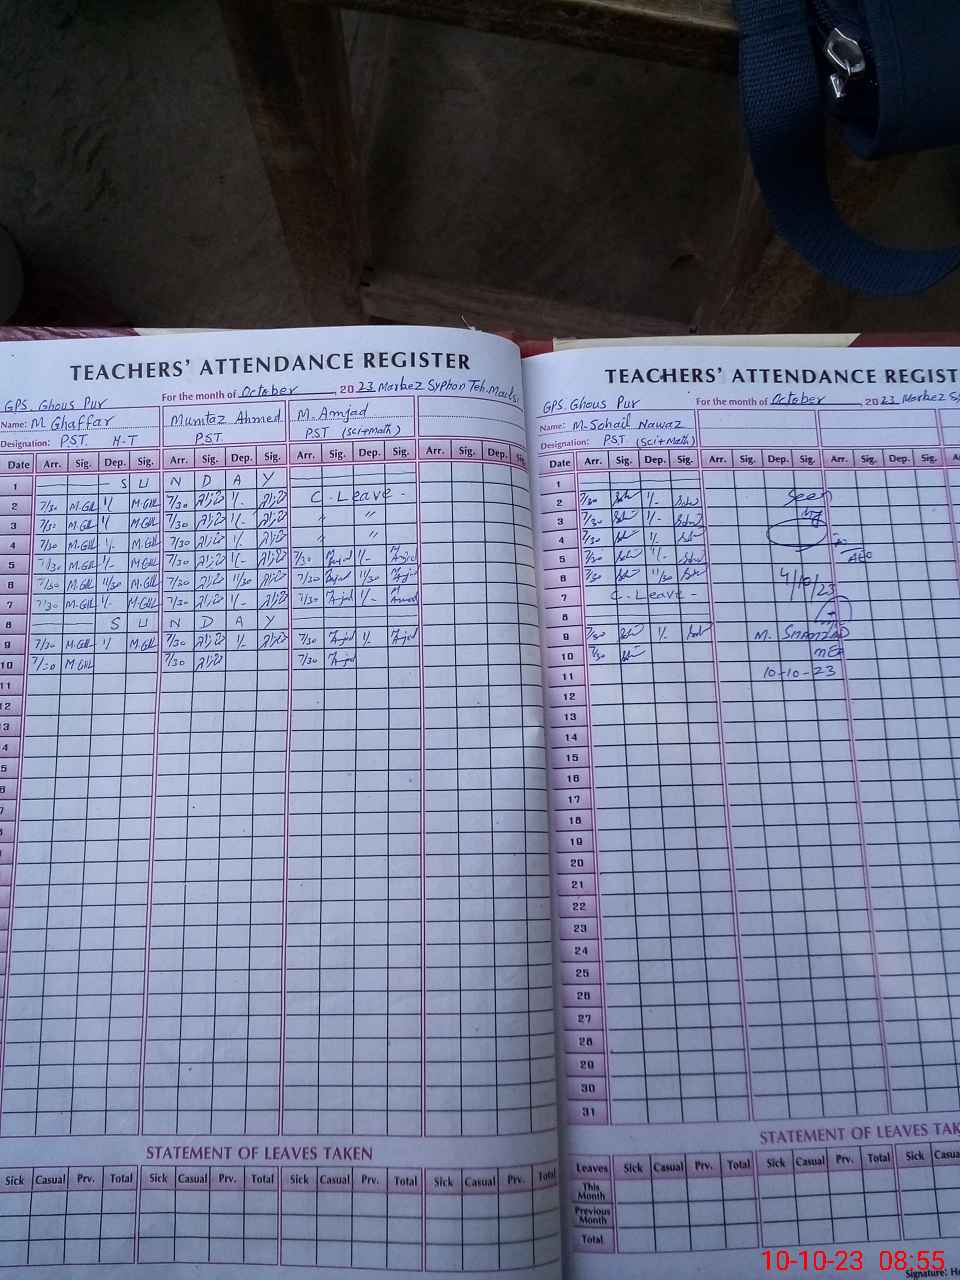 TEACHERS' ATTENDANCE REGISTER
GPS. Ghous Pur For the month of October 2023 Markez Syphon Teh. Mailsi
Name: M Ghaffar Mumtaz Ahmed M. Amjad
Designation: P.S.T. H-T P.S.T M. PST (Sci+Math)
Date Arr. Sig. Dep. Sig. Arr. Sig. Dep. Sig. Arr. Sig. Dep. Sig. Arr. Sig. Dep. Sig.
1 S U N D A Y
2 7/30 M.Gll 1/- M.Gll 7/30 1/- C. Leave -
3 7/30 M.Gll 1/- M.Gll 7/30 1/- " "
4 7/30 M.Gll 1/- M.Gll 7/30 1/- " "
5 7/30 M.Gll 1/- M.Gll 7/30 1/- 7/30 Amjad 1/- M Amjad
6 7/30 M.Gll 11/30 M.Gll 7/30 11/30 7/30 Amjad 11/30 M Amjad
7 7/30 M.Gll 1/- M.Gll 7/30 1/- 7/30 Amjad 1/- M Amjad
8 S U N D A Y
9 7/30 M.Gll 1/ M.Gll 7/30 1/- 7/30 Amjad 1/- Amjad
10 7/30 M Gll 7/30 7/30 Amjad
11
12
13
STATEMENT OF LEAVES TAKEN
Sick Casual Prv. Total Sick Casual Prv. Total Sick Casual Prv. Total Sick Casual Prv. Total
TEACHERS' ATTENDANCE REGIST
GPS. Ghous Pur For the month of October 2023
Name: M-Sohail Nawaz
Designation: PST (Sci+Math)
Date Arr. Sig. Dep. Sig. Arr. Sig. Dep. Sig. Arr. Sig. Dep. Sig. Arr.
1
2 7/30 1/- Seen
3 7/30 1/-
4 7/30 1/-
5 7/30 1/- AEO
6 7/30 11/30 4/10/23
7 C. Leave -
8
9 7/30 1/- M. SHAHZAD
10 7/30 MEA
11 10-10-23
12
13
14
15
16
17
18
19
20
21
22
23
24
25
26
27
28
29
30
31
STATEMENT OF LEAVES TAK
Leaves Sick Casual Prv. Total Sick Casual Prv. Total Sick Casua
This Month
Previous Month
Total
Signature: H
10-10-23 08:55